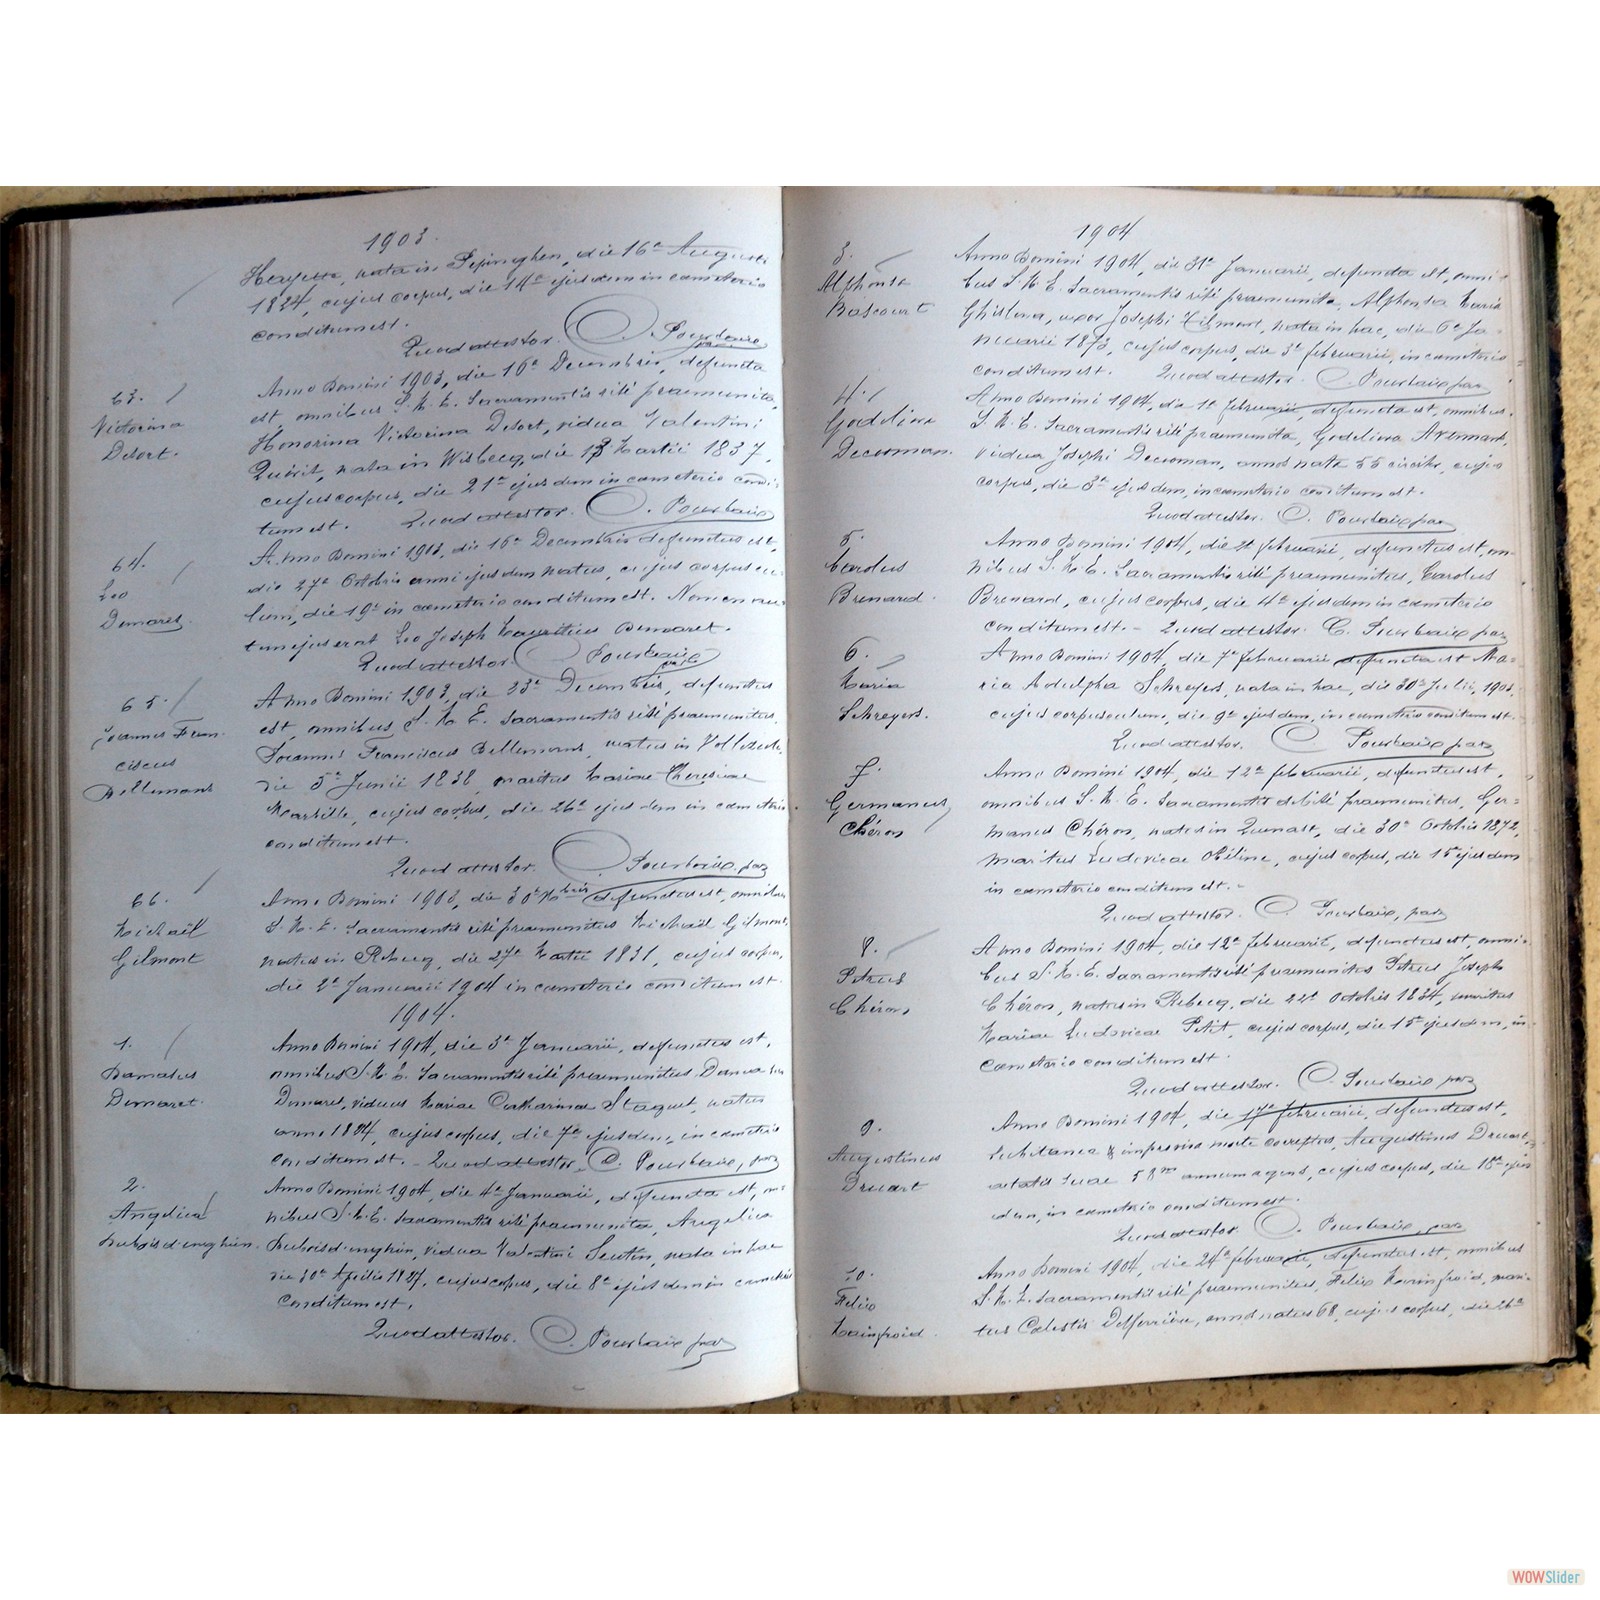 1903.
nata in Pepinghen, die 16a Augusti
1824, cujus corpus, die 14a ejusdem in cœmeterio
conditum est.
Quod attestor. C. Pourbaix
63.
Victorina
Desort.
Anno Domini 1903, die 16a Decembris, defuncta
est, omnibus S. M. E. Sacramentis rité praemunita,
Honorina Victorina Desort, vidua Valentini
nata in Wisbecq, die Martii 1837,
cujus corpus, die 21a ejusdem in cœmeterio condi-
tum est. Quod attestor. C. Pourbaix
64.
Leo
Demaret.
Anno Domini 1903, die 16a Decembris defunctus est,
die 27a Octobris anni ejusdem natus, cujus corpuscu-
lum, die 19a in cœmeterio conditum est. Nomen au-
tem ejus erat Leo Joseph Demaret.
Quod attestor. C. Pourbaix
65.
Joannes Fran-
ciscus
Bellemans
Anno Domini 1903, die 23a Decembris, defunctus
est, omnibus S. M. E. Sacramentis rité praemunitus,
Joannes Franciscus Bellemans, natus in
die 5a Junii 1838, maritus Mariae Theresiae
cujus corpus, die 26a ejusdem in cœmeterio
conditum est.
Quod attestor. C. Pourbaix, par
66.
Michaël
Gilmont
Anno Domini 1903, die 30a Xbris defunctus est, omnibus
S. M. E. Sacramentis rité praemunitus Michaël Gilmont,
natus in Rebecq, die 27a Martii 1831, cujus corpus,
die 2a Januarii 1904 in cœmeterio conditum est.
1904.
1.
Damasus
Demaret.
Anno Domini 1904, die 3a Januarii, defunctus est,
omnibus S. M. E. Sacramentis rité praemunitus Damasus
Demaret, viduus Mariae Catharinae Staquet, natus
anno 1824, cujus corpus, die 7a ejusdem, in cœmeterio
conditum est. - Quod attestor, C. Pourbaix, par
2.
Angelica
Dubois d'enghien.
Anno Domini 1904, die 4a Januarii, defuncta est, om-
nibus S. M. E. Sacramentis rité praemunita, Angelica
Dubois d'enghien, vidua Valentini Seutin, nata in hac
die 30a Aprilis 1827, cujus corpus, die 8a ejusdem in cœmeterio
conditum est.
Quod attestor. C. Pourbaix par
1904
3.
Alphonsa
Bascourt
Anno Domini 1904, die 31a Januarii, defuncta est, omni-
bus S. M. E. Sacramentis rité praemunita, Alphonsa Maria
Ghislena, uxor Josephi Gilmont, nata in hac, die 6a Ja-
nuarii 1873, cujus corpus, die 3a februarii, in cœmeterio
conditum est. Quod attestor. C. Pourbaix par
4.
Godelina
Decooman.
Anno Domini 1904, die 1a februarii, defuncta est, omnibus
S. M. E. Sacramentis rité praemunita, Godeliva
vidua Josephi Decooman, annos nata 55 circiter, cujus
corpus, die 3a ejusdem, in cœmeterio conditum est.
Quod attestor. C. Pourbaix par
5.
Carolus
Brenard.
Anno Domini 1904, die 2a februarii, defunctus est, om-
nibus S. M. E. Sacramentis rité praemunitus, Carolus
Brenard, cujus corpus, die 4a ejusdem in cœmeterio
conditum est. - Quod attestor. C. Pourbaix par
6.
Maria
Schreyers.
Anno Domini 1904, die 7a februarii defuncta est Ma-
ria Adolpha Schreyers, nata in hac, die 30a Julii, 1903
cujus corpusculum, die 9a ejusdem, in cœmeterio conditum est.
Quod attestor. C. Pourbaix par
7.
Germanus
Chéron
Anno Domini 1904, die 12a februarii, defunctus est,
omnibus S. M. E. Sacramentis debité praemunitus, Ger-
manus Chéron, natus in Quenast, die 30a Octobris 1872,
maritus Ludovicae cujus corpus, die 15a ejusdem
in cœmeterio conditum est.-
Quod attestor. C. Pourbaix, par
8.
Petrus
Chéron
Anno Domini 1904, die 12a februarii, defunctus est, omni-
bus S. M. E. Sacramentis rité praemunitus Petrus Joseph
Chéron, natus in Rebecq, die 22a Octobris 1834, maritus
Mariae Ludovicae Petit, cujus corpus, die 15a ejusdem, in
cœmeterio conditum est.
Quod attestor. C. Pourbaix par
9.
Augustinus
Druart
Anno Domini 1904, die 17a februarii, defunctus est,
subitanea & improvisa morte correptus, Augustinus Druart
aetatis suae 58um annum agens, cujus corpus, die 18a ejus-
dem, in cœmeterio conditum est.
Quod attestor. C. Pourbaix, par
10.
Felix
Mainfroid.
Anno Domini 1904, die 24a februarii, defunctus est, omnibus
S. M. E. Sacramentis rité praemunitus, Felix Mainfroid, mari-
tus Celestis annos natus 68, cujus corpus, die 26a
WOWSlider